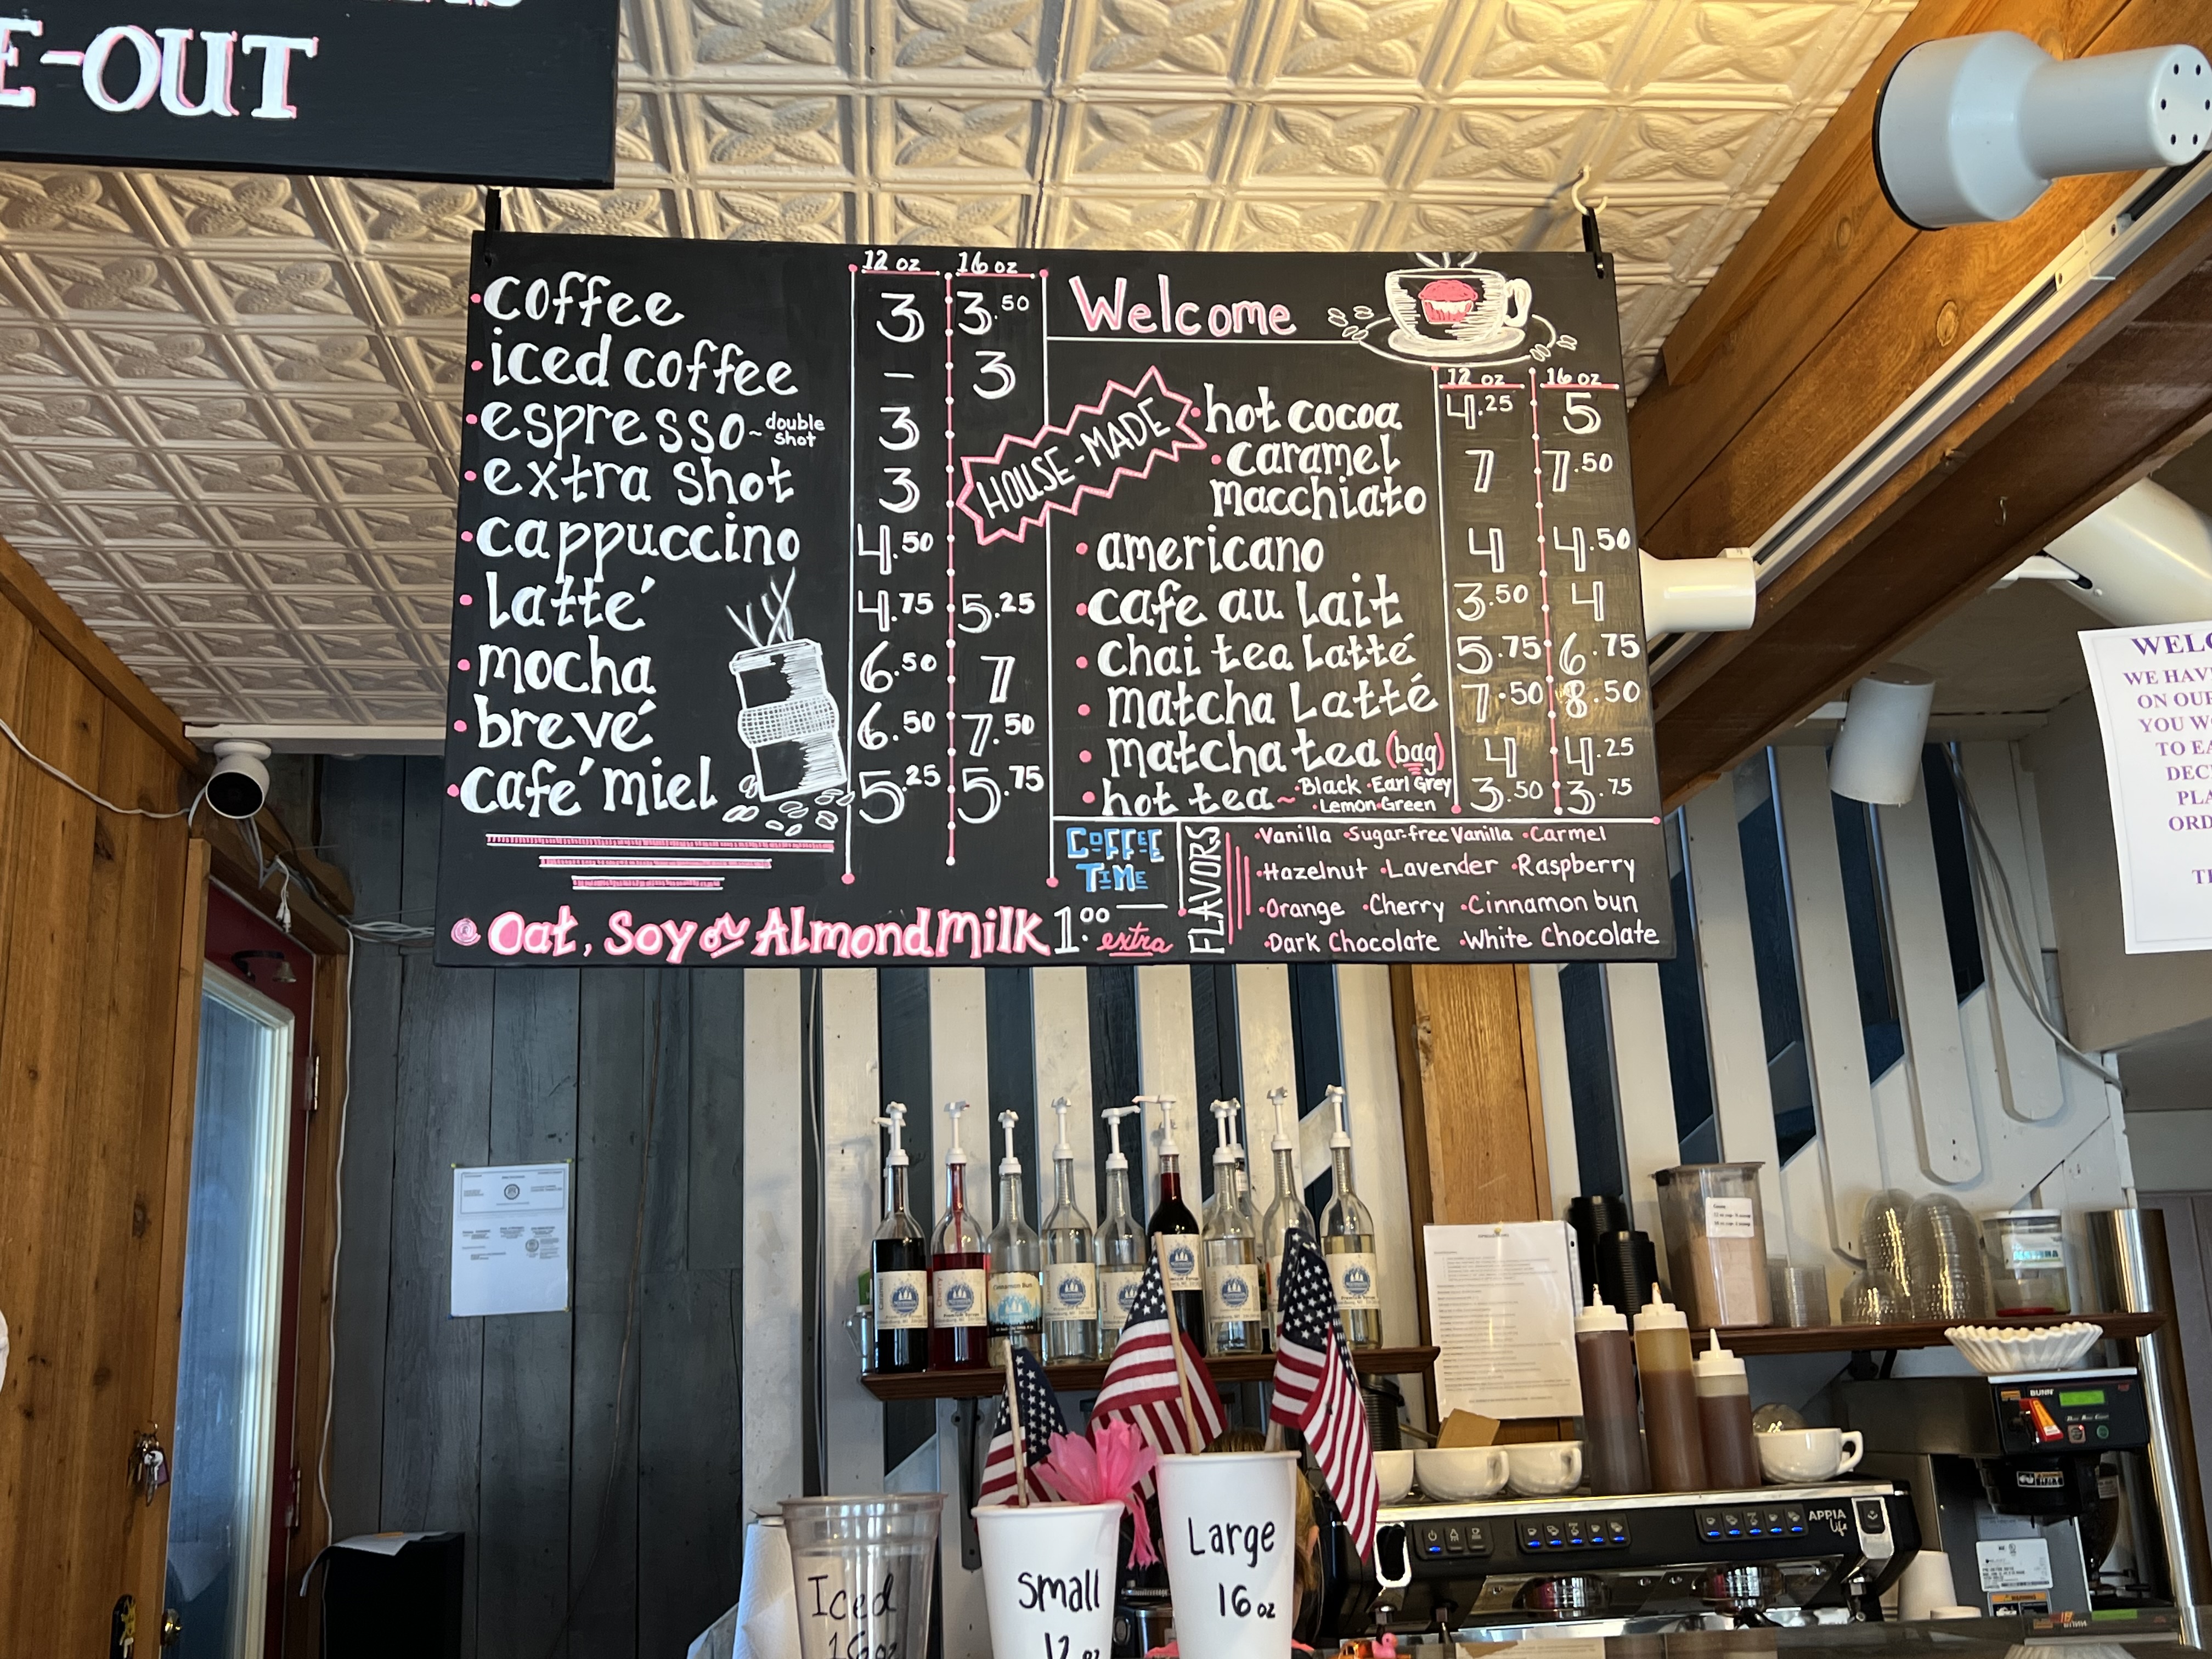 E-OUT
12 oz 16 oz
coffee 3 3.50
iced coffee - 3
espresso ~ double shot 3
extra shot 3
cappuccino 4.50
Latté 4.75 5.25
mocha 6.50 7
brevé 6.50 7.50
café miel 5.25 5.75
Oat, Soy or Almond Milk 1.00 extra
Welcome
12 oz 16 oz
HOUSE-MADE
hot cocoa 4.25 5
caramel
macchiato 7 7.50
americano 4 4.50
cafe au lait 3.50 4
chai tea Latté 5.75 6.75
matcha Latté 7.50 8.50
matcha tea (bag) 4 4.25
hot tea ~ •Black •Earl Grey 3.50 3.75
•Lemon •Green
COFFEE
TIME
FLAVORS
•Vanilla •Sugar-free Vanilla •Carmel
•Hazelnut •Lavender •Raspberry
•Orange •Cherry •Cinnamon bun
•Dark Chocolate •White Chocolate
WELC
WE HAV
ON OU
YOU W
TO EA
DEC
PLA
ORD
Cinnamon Bun
BUNN
APPIA
Life
Iced
16oz
Small
12 oz
Large
16 oz